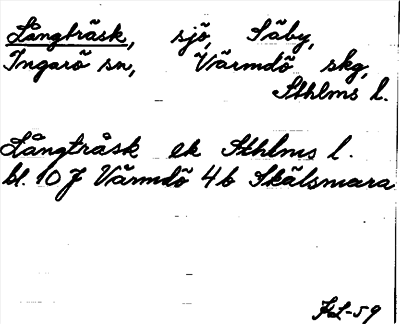 Långträsk, sjö, Säby,
Ingarö sn, Värmdö skg,
Sthlms l.
Långträsk ek Sthlms l.
bl. 10 J Värmdö 4 b Skälsmara
HL-59